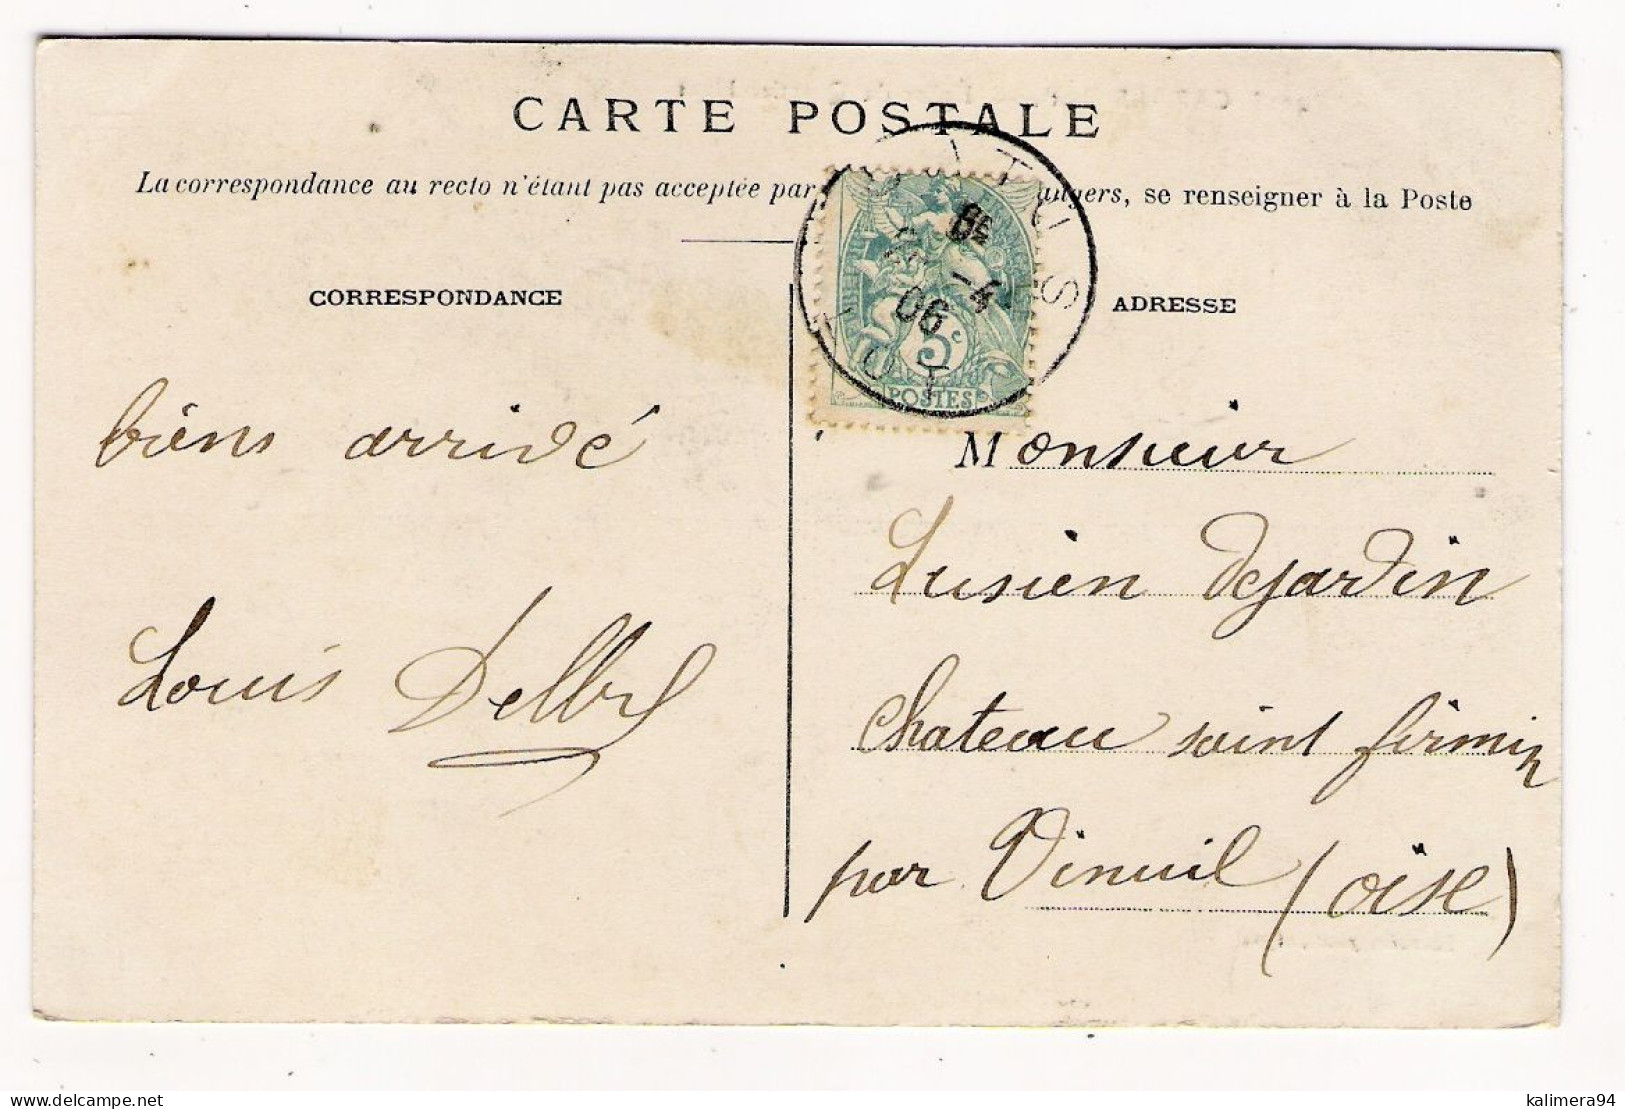 CARTE POSTALE
La correspondance au recto n'étant pas acceptée par angers, se renseigner à la Poste
CORRESPONDANCE
ADRESSE
06
-4
06
5c
POSTES
biens arrivé
Louis
Monsieur
Lusien dejardin
chateau saint firmin
par Vinuil (oise)
delcampe.net
kalimera94